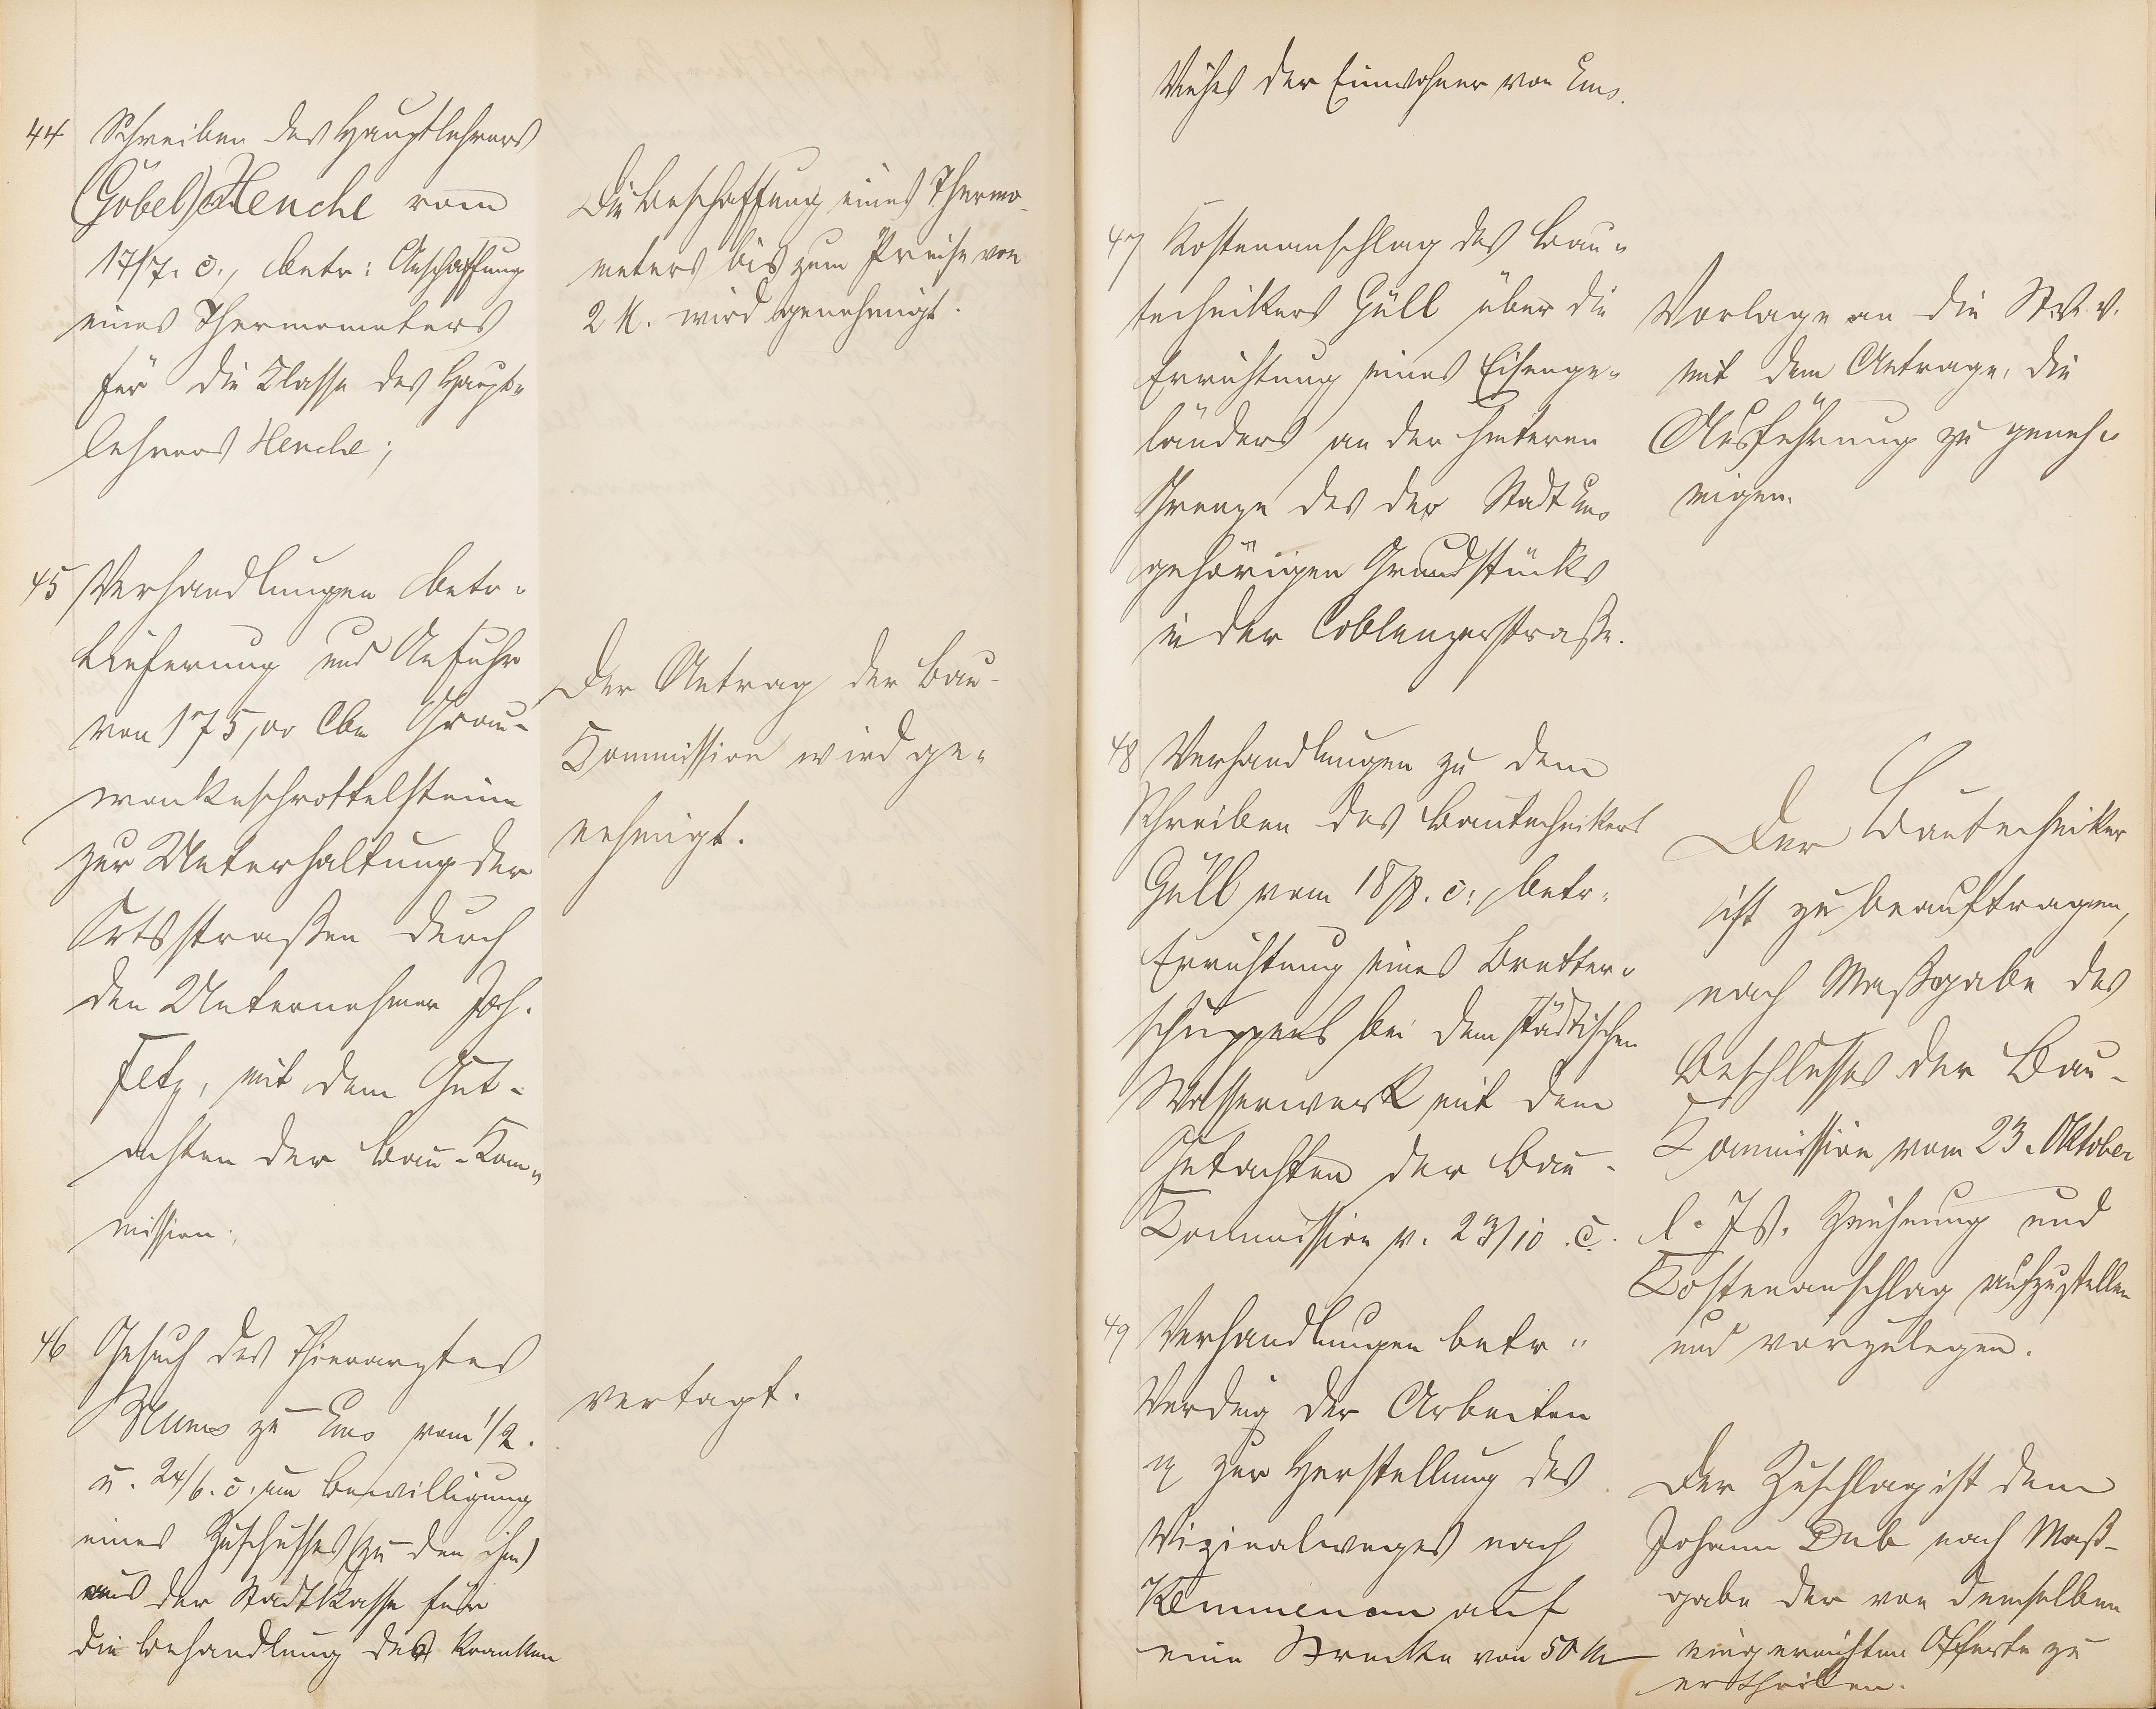 44 Schreiben des Hauptlehrers
(Göbel) Henche vom
17/7. c., betr: Anschaffung
eines Thermometers
für die Klasse des Haupt-
lehrers Henche;
Die Beschaffung eines Thermo-
meters bis zum Preise von
2 M. wird genehmigt.
45 Verhandlungen betr.
Lieferung und Anfuhr
von 175,00 Cbm Grau-
wackeschrottelsteine
zur Unterhaltung der
Ortsstraßen durch
den Unternehmer Joh.
Fetz, mit dem Gut-
achten der Bau-Kom-
mission;
Der Antrag der Bau-
Kommission wird ge-
nehmigt.
46 Gesuch des Thierarztes
zu Ems vom 1/2.
u. 24/6. c. um Bewilligung
eines Zuschusses (zu den ihm)
aus der Stadtkasse für
die Behandlung des kranken
vertagt.
Viehes der Einwohner von Ems.
47 Kostenanschlag des Bau-
technikers Güll über die
Errichtung eines Eisenge-
länders an der hinteren
Grenze des der Stadt Ems
gehörigen Grundstücks
in der Coblenzerstraße.
Vorlage an die St. V. V.
mit dem Antrage, die
Ausführung zu geneh-
migen.
48 Verhandlungen zu dem
Schreiben des Bautechnikers
Güll vom 18/8. c., betr.
Errichtung eines Bretter-
schuppens bei dem städtischen
Wasserwerk mit dem
Gutachten der Bau-
Kommission v. 23/10. c.
Der Bautechniker
ist zu beauftragen,
nach Maßgabe des
Beschlusses der Bau-
Kommission vom 23. Oktober
l. Js. Zeichnung und
Kostenanschlag aufzustellen
und vorzulegen.
49 Verhandlungen betr.
Verding der Arbeiten
pp zur Herstellung des
Vizinalweges nach
Kemmenau auf
eine Strecke von 50 M
Der Zuschlag ist dem
Johann Dub nach Maß-
gabe der von demselben
eingereichten Offerte zu
ertheilen.